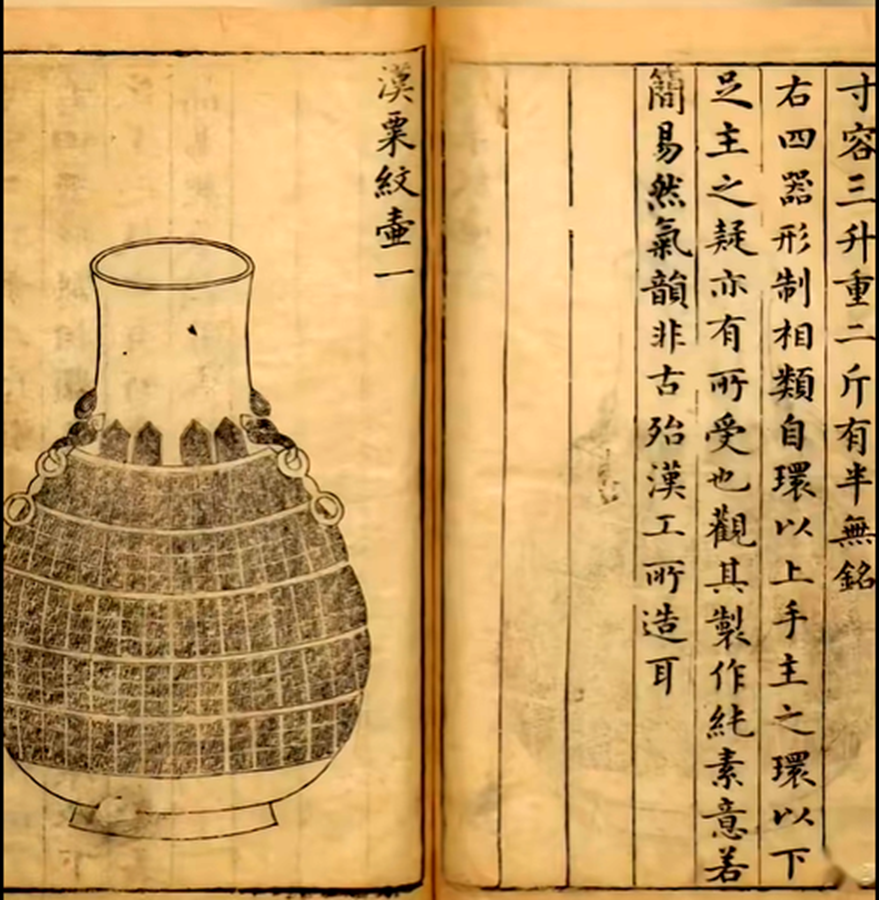 寸容三升重二斤有半無銘
右四器形制相類自環以上手主之環以下
足主之疑亦有所受也觀其製作純素意若
簡易然氣韻非古殆漢工所造耳
漢粟紋壷一